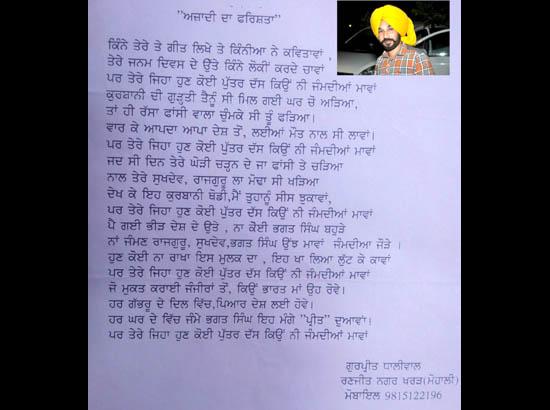 "ਅਜ਼ਾਦੀ ਦਾ ਫਰਿਸ਼ਤਾ"
ਕਿੰਨੇ ਤੇਰੇ ਤੇ ਗੀਤ ਲਿਖੇ ਤੇ ਕਿੰਨੀਆ ਨੇ ਕਵਿਤਾਵਾਂ ,
ਤੇਰੇ ਜਨਮ ਦਿਵਸ ਦੇ ਉਤੇ ਕਿੰਨੇ ਲੋਕੀਂ ਕਰਦੇ ਚਾਵਾਂ
ਪਰ ਤੇਰੇ ਜਿਹਾ ਹੁਣ ਕੋਈ ਪੁੱਤਰ ਦੱਸ ਕਿਉਂ ਨੀ ਜੰਮਦੀਆਂ ਮਾਵਾਂ
ਕੁਹਬਾਨੀ ਦੀ ਗੁੜ੍ਹਤੀ ਤੈਨੂੰ ਸੀ ਮਿਲ ਗਈ ਘਰ ਚੋ ਅੜਿਆ,
ਤਾਂ ਹੀ ਰੱਸਾ ਫਾਂਸੀ ਵਾਲਾ ਚੁੰਮਕੇ ਸੀ ਤੂੰ ਫੜਿਆ।
ਵਾਰ ਕੇ ਆਪਦਾ ਆਪਾ ਦੇਸ਼ ਤੋਂ, ਲਈਆਂ ਮੌਤ ਨਾਲ ਸੀ ਲਾਵਾਂ।
ਪਰ ਤੇਰੇ ਜਿਹਾ ਹੁਣ ਕੋਈ ਪੁੱਤਰ ਦੱਸ ਕਿਉਂ ਨੀ ਜੰਮਦੀਆਂ ਮਾਵਾਂ
ਜਦ ਸੀ ਦਿਨ ਤੇਰੇ ਘੋੜੀ ਚੜ੍ਹਨ ਦੇ ਜਾ ਫਾਂਸੀ ਤੇ ਚੜਿਆ
ਨਾਲ ਤੇਰੇ ਸੁਖਦੇਵ, ਰਾਜਗੁਰੂ ਲਾ ਮੋਢਾ ਸੀ ਖੜਿਆ
ਦੇਖ ਕੇ ਇਹ ਕੁਰਬਾਨੀ ਥੋਡੀ,ਮੈਂ ਤੁਹਾਨੂੰ ਸੀਸ ਝੁਕਾਵਾਂ,
ਪਰ ਤੇਰੇ ਜਿਹਾ ਹੁਣ ਕੋਈ ਪੁੱਤਰ ਦੱਸ ਕਿਉਂ ਨੀ ਜੰਮਦੀਆਂ ਮਾਵਾਂ
ਪੈ ਗਈ ਭੀੜ ਦੇਸ਼ ਦੇ ਉਤੇ , ਨਾ ਕੋਈ ਭਗਤ ਸਿੰਘ ਬਹੁੜੇ
ਨਾਂ ਜੰਮਣ ਰਾਜਗੁਰੂ, ਸੁਖਦੇਵ,ਭਗਤ ਸਿੰਘ ਉਂਝ ਮਾਵਾਂ ਜੰਮਦੀਆ ਜੌੜੇ ।
ਹੁਣ ਕੋਈ ਨਾ ਰਾਖਾ ਇਸ ਮੁਲਕ ਦਾ , ਇਹ ਖਾ ਲਿਆ ਲੁੱਟ ਕੇ ਕਾਵਾਂ
ਪਰ ਤੇਰੇ ਜਿਹਾ ਹੁਣ ਕੋਈ ਪੁੱਤਰ ਦੱਸ ਕਿਉਂ ਨੀ ਜੰਮਦੀਆਂ ਮਾਵਾਂ
ਜੋ ਮੁਕਤ ਕਰਾਈ ਜੰਜੀਰਾਂ ਤੋਂ, ਕਿਉਂ ਭਾਰਤ ਮਾਂ ਉਹ ਰੋਵੇ।
ਹਰ ਗੱਭਰੂ ਦੇ ਦਿਲ ਵਿੱਚ,ਪਿਆਰ ਦੇਸ਼ ਲਈ ਹੋਵੇ।
ਹਰ ਘਰ ਦੇ ਵਿੱਚ ਜੰਮੇ ਭਗਤ ਸਿੰਘ ਇਹ ਮੰਗੇ "ਪ੍ਰੀਤ" ਦੁਆਵਾਂ।
ਪਰ ਤੇਰੇ ਜਿਹਾ ਹੁਣ ਕੋਈ ਪੁੱਤਰ ਦੱਸ ਕਿਉਂ ਨੀ ਜੰਮਦੀਆਂ ਮਾਵਾਂ
ਗੁਰਪ੍ਰੀਤ ਧਾਲੀਵਾਲ
ਰਣਜੀਤ ਨਗਰ ਖਰੜ(ਮੋਹਾਲੀ)
ਮੋਬਾਇਲ 9815122196